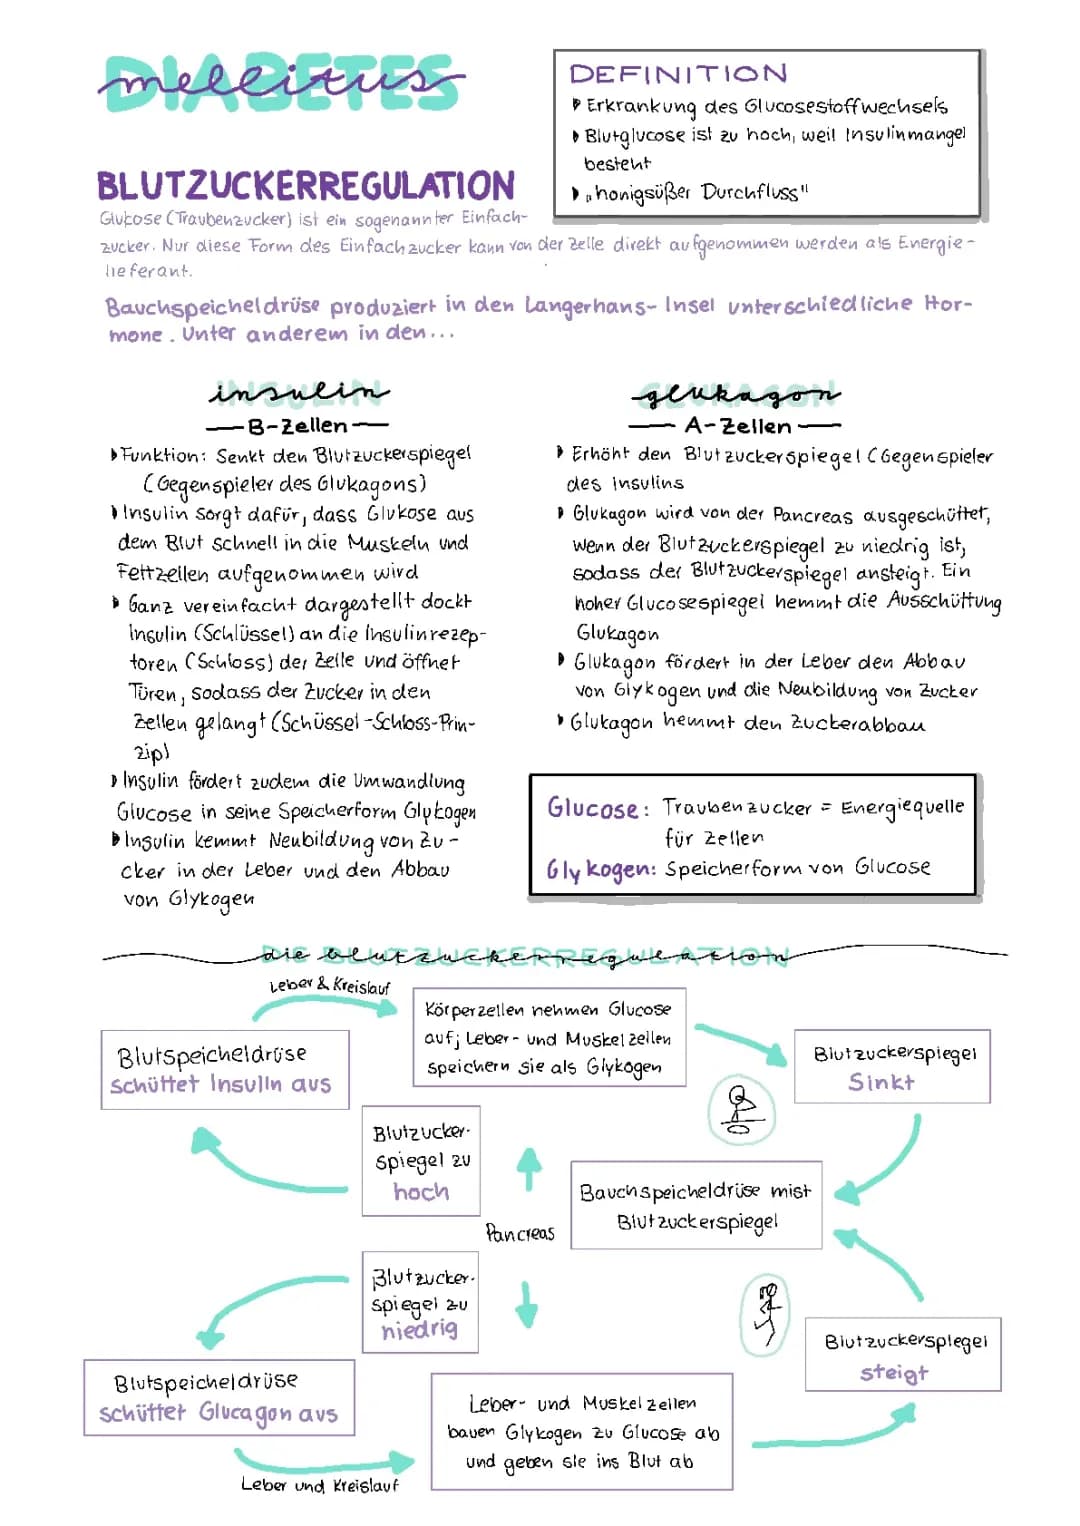 DIABETES
mellitus
DEFINITION
Erkrankung des Glucosestoffwechsels
Blutglucose ist zu hoch, weil Insulinmangel
besteht
„honigsüßer Durchfluss"
BLUTZUCKERREGULATION
Glukose (Traubenzucker) ist ein sogenannter Einfach-
zucker. Nur diese Form des Einfachzucker kann von der Zelle direkt aufgenommen werden als Energie-
lieferant.
Bauchspeicheldrüse produziert in den Langerhans-Insel unterschiedliche Hor-
mone. Unter anderem in den...
INSULIN
insulin
B-Zellen
Funktion: Senkt den Blutzuckerspiegel
(Gegenspieler des Glukagons)
Insulin sorgt dafür, dass Glukose aus
dem Blut schnell in die Muskeln und
Fettzellen aufgenommen wird
Ganz vereinfacht dargestellt dockt
Insulin (Schlüssel) an die Insulinrezep-
toren (Schloss) der Zelle und öffnet
Türen, sodass der Zucker in den
Zellen gelangt (Schüssel-Schloss-Prin-
zip)
Insulin fördert zudem die Umwandlung
Glucose in seine Speicherform Glykogen
Insulin kemmt Neubildung von Zu-
cker in der Leber und den Abbau
von Glykogen
GLUKAGON
glukagon
A-Zellen
Erhöht den Blutzuckerspiegel (Gegenspieler
des Insulins
Glukagon wird von der Pancreas ausgeschüttet,
wenn der Blutzuckerspiegel zu niedrig ist,
sodass der Blutzuckerspiegel ansteigt. Ein
hoher Glucosespiegel hemmt die Ausschüttung
Glukagon
Glukagon fördert in der Leber den Abbau
von Glykogen und die Neubildung von Zucker
Glukagon hemmt den Zuckerabbau
Glucose: Traubenzucker = Energiequelle
für Zellen
Glykogen: Speicherform von Glucose
DIE BLUTZUCKERREGULATION
die blutzuckerregulation
Leber & Kreislauf
Körperzellen nehmen Glucose
auf; Leber- und Muskelzellen
speichern sie als Glykogen
Blutspeicheldrüse
schüttet Insulin aus
Blutzuckerspiegel
Sinkt
Blutzucker-
spiegel zu
hoch
Bauchspeicheldrüse mist
Blutzuckerspiegel
Pancreas
Blutzucker-
spiegel zu
niedrig
Blutzuckerspiegel
steigt
Blutspeicheldrüse
schüttet Glucagon aus
Leber- und Muskelzellen
bauen Glykogen zu Glucose ab
und geben sie ins Blut ab
Leber und Kreislauf